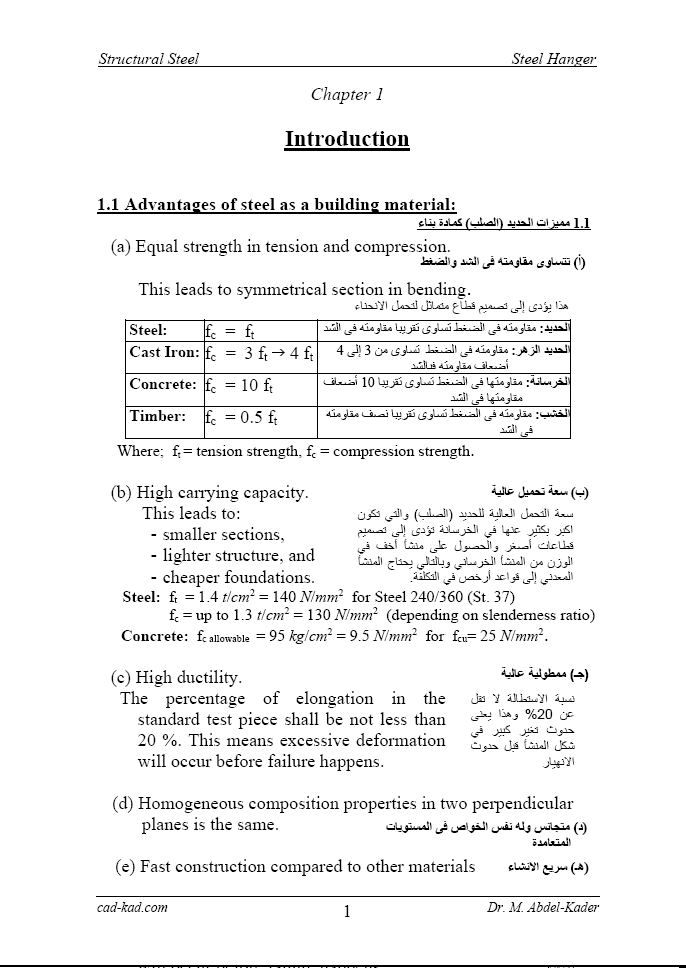 Structural Steel Steel Hanger
Chapter 1
Introduction
1.1 Advantages of steel as a building material:
1.1 مميزات الحديد (الصلب) كمادة بناء
(a) Equal strength in tension and compression.
(أ) تتساوى مقاومته فى الشد والضغط
This leads to symmetrical section in bending.
هذا يؤدى إلى تصميم قطاع متماثل لتحمل الانحناء
Steel: fc = ft الحديد: مقاومته فى الضغط تساوى تقريبا مقاومته فى الشد
Cast Iron: fc = 3 ft → 4 ft الحديد الزهر: مقاومته فى الضغط تساوى من 3 إلى 4
أضعاف مقاومته فىالشد
Concrete: fc = 10 ft الخرسانة: مقاومتها فى الضغط تساوى تقريبا 10 أضعاف
مقاومتها فى الشد
Timber: fc = 0.5 ft الخشب: مقاومته فى الضغط تساوى تقريبا نصف مقاومته
فى الشد
Where; ft = tension strength, fc = compression strength.
(b) High carrying capacity. (ب) سعة تحميل عالية
This leads to:
- smaller sections,
- lighter structure, and
- cheaper foundations.
سعة التحمل العالية للحديد (الصلب) والتي تكون
اكبر بكثير عنها في الخرسانة تؤدى إلى تصميم
قطاعات أصغر والحصول على منشأ أخف في
الوزن من المنشأ الخرساني وبالتالي يحتاج المنشأ
المعدني إلى قواعد أرخص في التكلفة.
Steel: ft = 1.4 t/cm² = 140 N/mm² for Steel 240/360 (St. 37)
fc = up to 1.3 t/cm² = 130 N/mm² (depending on slenderness ratio)
Concrete: fc allowable = 95 kg/cm² = 9.5 N/mm² for fcu= 25 N/mm².
(c) High ductility. (جـ) ممطولية عالية
The percentage of elongation in the
standard test piece shall be not less than
20 %. This means excessive deformation
will occur before failure happens.
نسبة الاستطالة لا تقل
عن 20% وهذا يعنى
حدوث تغير كبير في
شكل المنشأ قبل حدوث
الانهيار
(d) Homogeneous composition properties in two perpendicular
planes is the same. (د) متجانس وله نفس الخواص فى المستويات
المتعامدة
(e) Fast construction compared to other materials (هـ) سريع الانشاء
cad-kad.com 1 Dr. M. Abdel-Kader